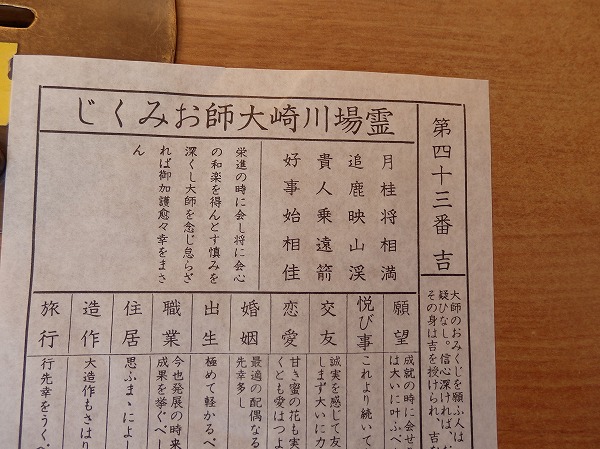 霊場川崎大師おみくじ
第四十三番 吉
大師のおみくじを願ふ人は
疑ひなし。信心深ければ、
その身は吉を授けられ、吉
月桂将相満
追鹿映山渓
貴人乗遠箭
好事始相佳
栄進の時に会し将に会心
の和楽を得んとす慎みを
深くし大師を念じ怠らざ
れば御加護愈々幸をまさ
ん
願望
成就の時に会せ
は大いに叶ふべ
悦び事
これより続いて
交友
誠実を感じて友
しまず大いに力
恋愛
甘き蜜の花も実
くども愛はつよ
婚姻
最適の配偶なる
先幸多し
出生
極めて軽かるべ
職業
今也発展の時来
成果を挙ぐべし
住居
思ふまゝによし
造作
大造作もさはり
旅行
行先幸をうく。